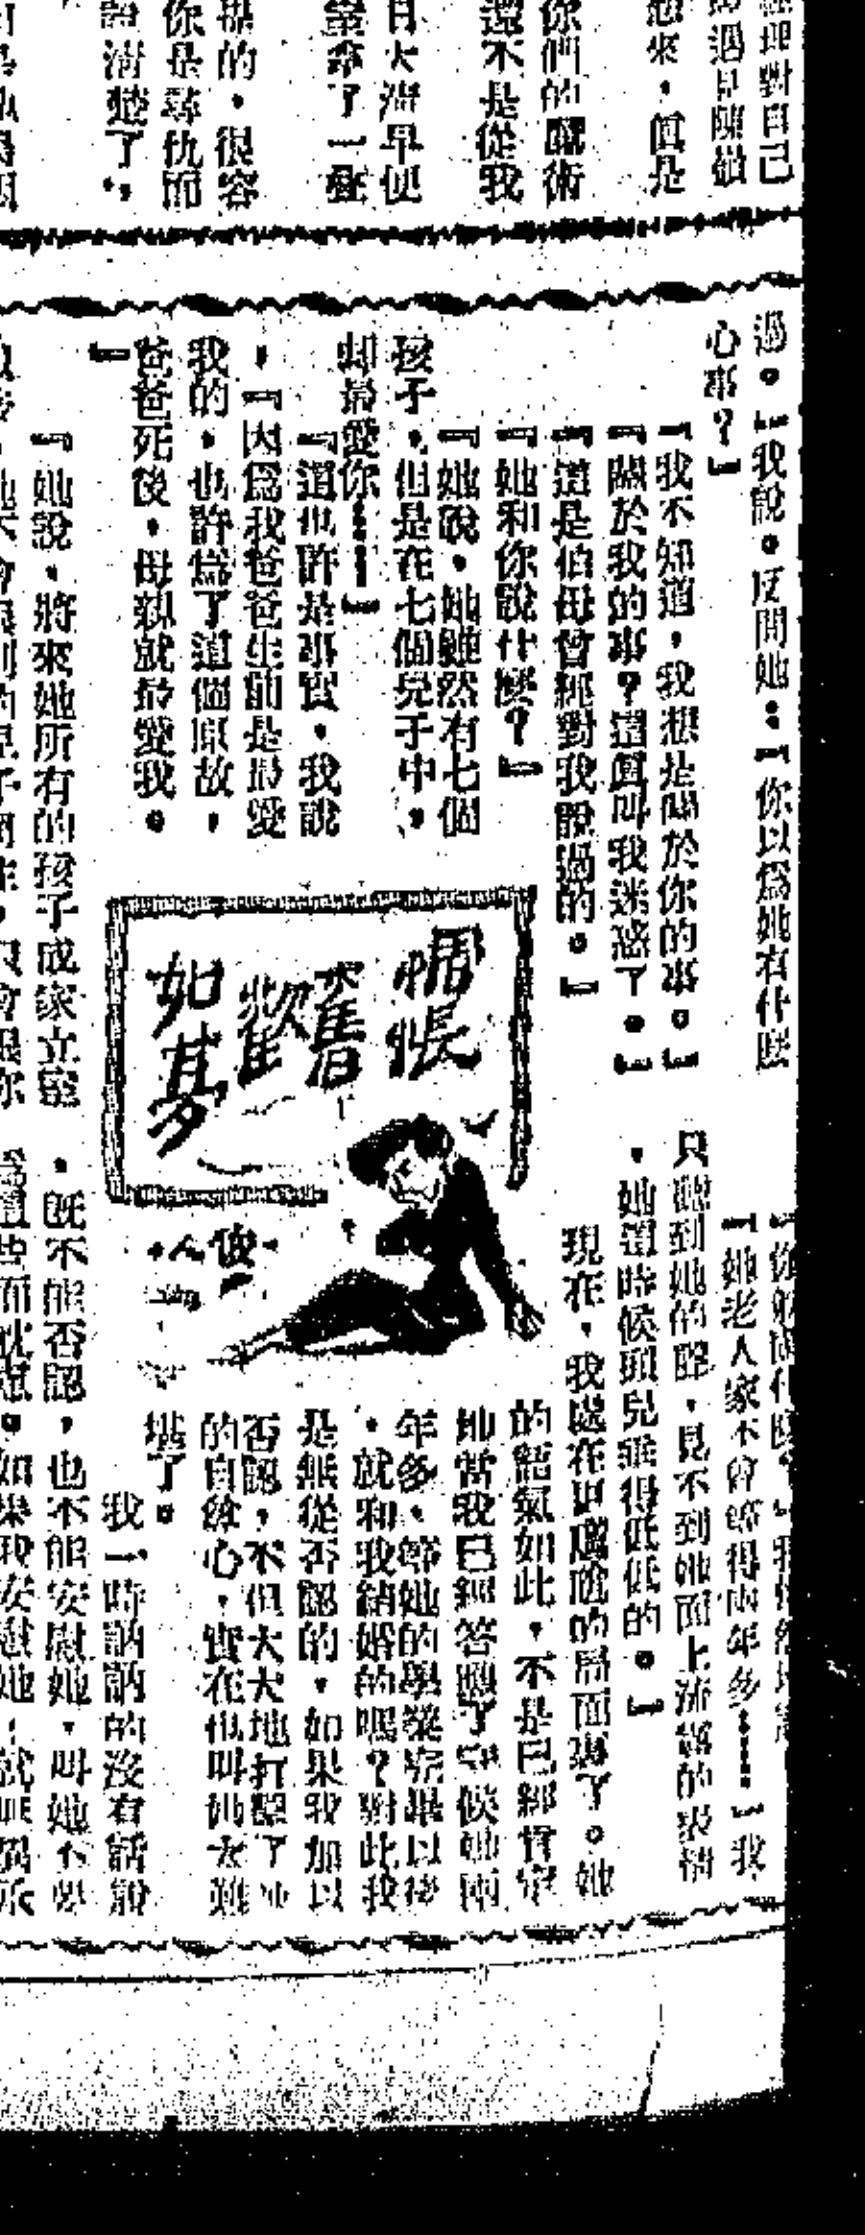 經理對自己
遇見陳嶺
來，但是
你們的魔術
還不是從我
日大清早便
拿了一疊
的，很容
你是尋仇而
清楚了，
過。』我說。反問她：『你以爲她有什麽
心事？』
『我不知道，我想是關於你的事。』
『關於我的事？這眞叫我迷惑了。』
『這是伯母曾經對我說過的。』
『她和你說什麽？』
『她說，她雖然有七個
孩子，但是在七個兒子中，
却最愛你……』
『這也許是事實，我說
，『因爲我爸爸生前是最愛
我的，也許爲了這個原故，
爸爸死後，母親就最愛我。
』
『她說，將來她所有的孩子成家立室
惆悵
舊歡
如夢
俊人
『她老人家不會等得兩年多……』我
只聽到她的聲，見不到她面上流露的表情
，她這時候頭兒垂得低低的。』
現在，我處在更尷尬的局面裏了。她
的語氣如此，不是已經肯定
她當我已經答應了等候她兩
年多，等她的學業完畢以後
，就和我結婚的嗎？對此我
是無從否認的，如果我加以
否認，不但大大地打擊了她
的自尊心，實在也叫她太難
堪了。
我一時訥訥的沒有話說
，旣不能否認，也不能安慰她，叫她不要